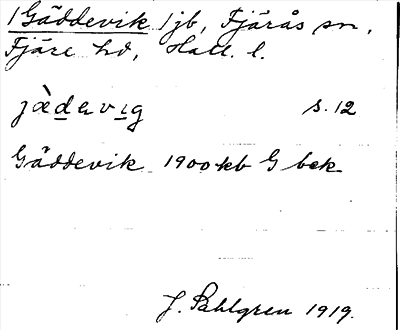 1 Gäddevik 1 jb, Fjärås sn,
Fjäre hd, Hall. l.
jä̀dəvig s. 12
Gäddevik 1900 kb G bek
J. Sahlgren 1919.